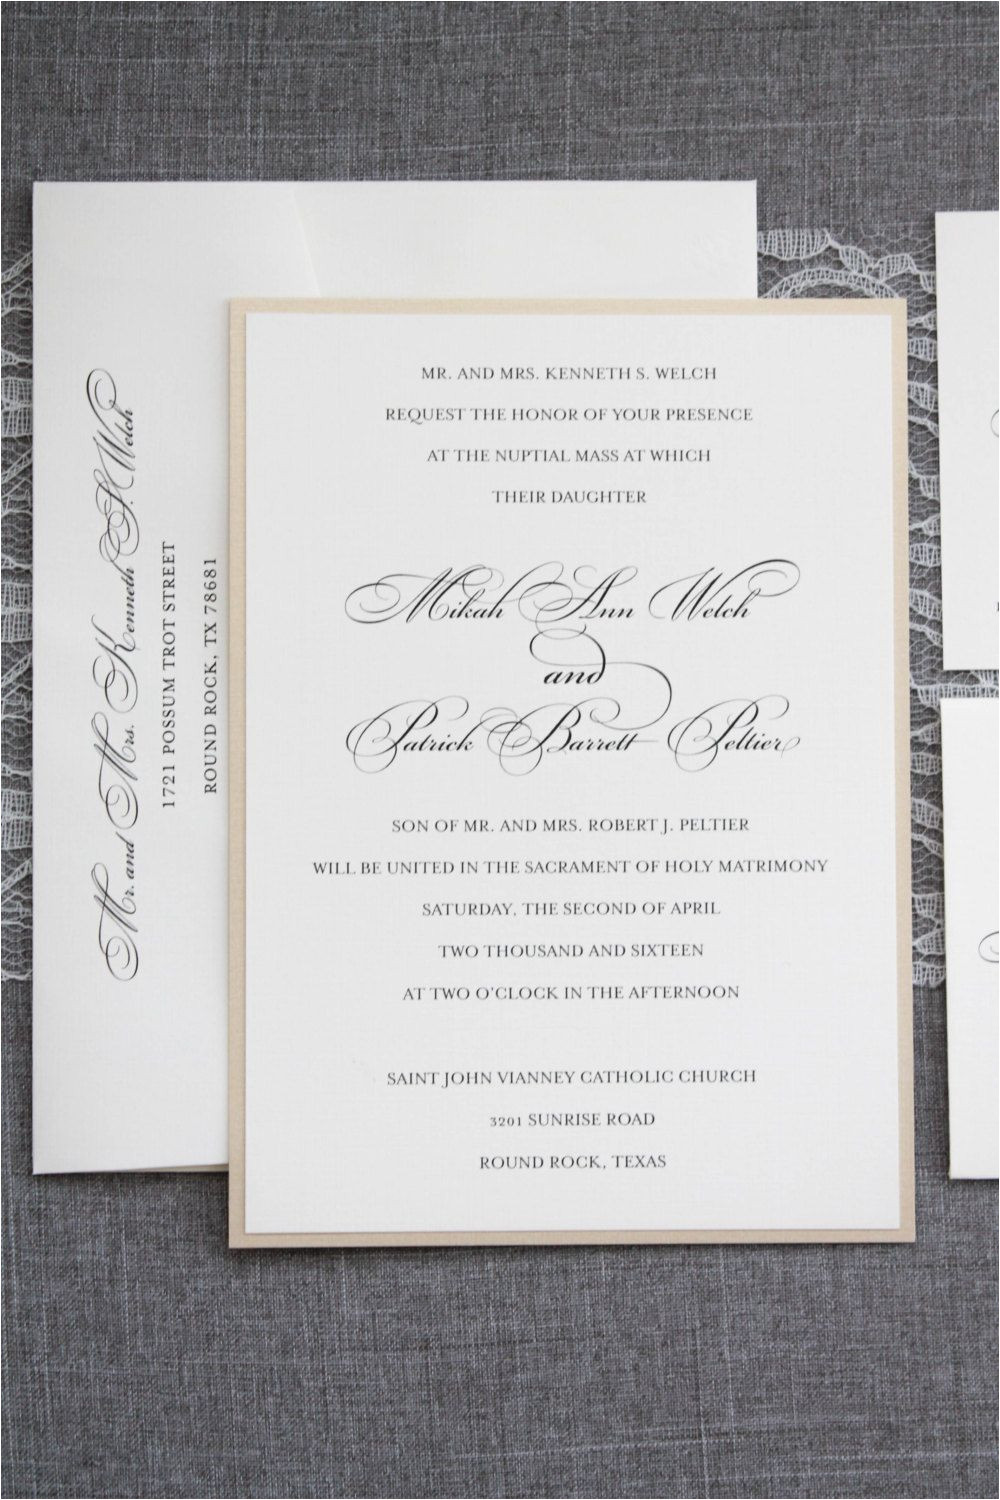 Mr. and Mrs. Kenneth S. Welch
1721 POSSUM TROT STREET
ROUND ROCK, TX 78681
MR. AND MRS. KENNETH S. WELCH
REQUEST THE HONOR OF YOUR PRESENCE
AT THE NUPTIAL MASS AT WHICH
THEIR DAUGHTER
Mikah Ann Welch
and
Patrick Barrett Peltier
SON OF MR. AND MRS. ROBERT J. PELTIER
WILL BE UNITED IN THE SACRAMENT OF HOLY MATRIMONY
SATURDAY, THE SECOND OF APRIL
TWO THOUSAND AND SIXTEEN
AT TWO O'CLOCK IN THE AFTERNOON
SAINT JOHN VIANNEY CATHOLIC CHURCH
3201 SUNRISE ROAD
ROUND ROCK, TEXAS